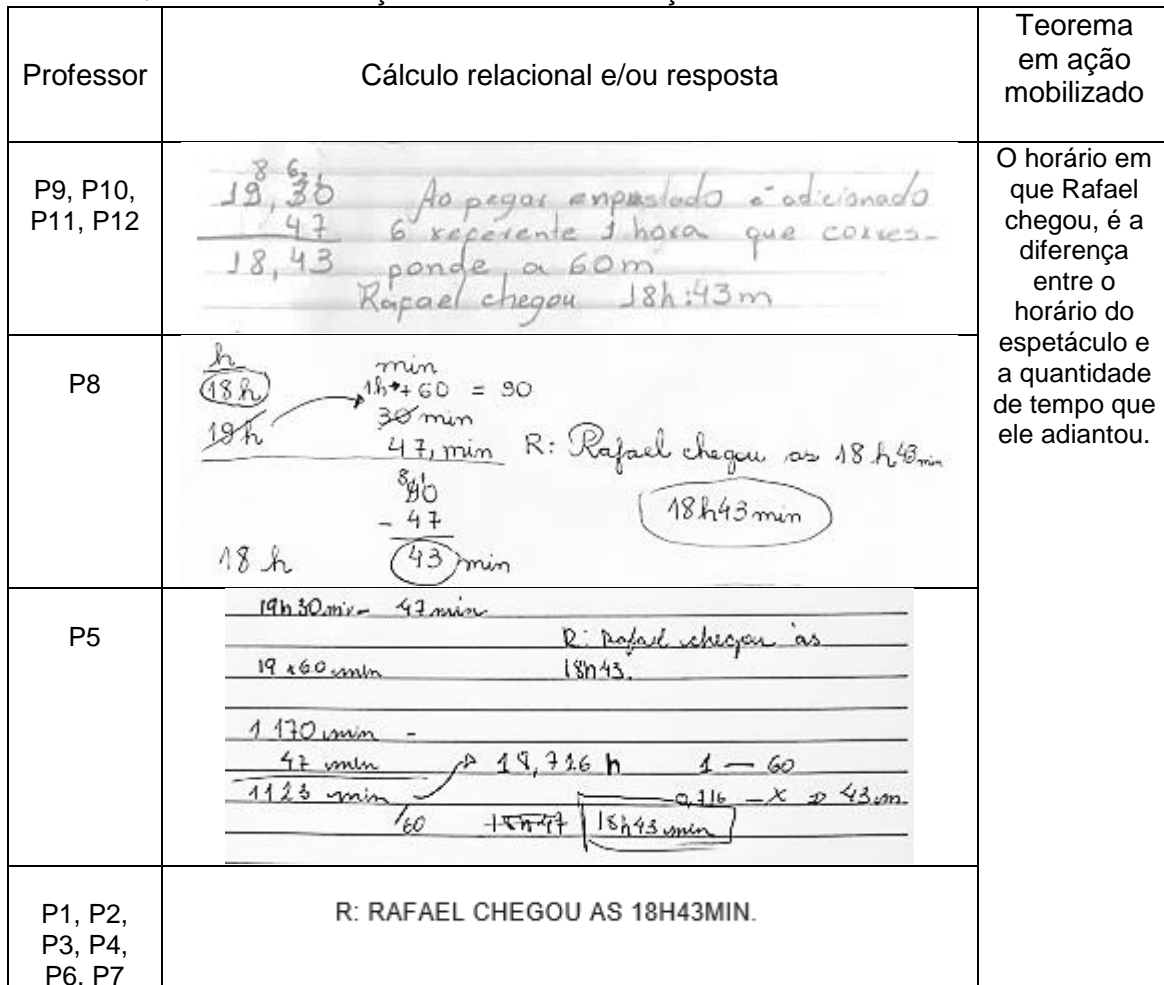 Professor
Cálculo relacional e/ou resposta
Teorema
em ação
mobilizado
P9, P10,
P11, P12
8 6 1
19,30 Ao pegar emprestado é adicionado
47 6 referente 1 hora que corres-
18,43 ponde a 60m
Rafael chegou 18h:43m
O horário em
que Rafael
chegou, é a
diferença
entre o
horário do
espetáculo e
a quantidade
de tempo que
ele adiantou.
P8
h min
18h 1h + 60 = 90
19h 30 min
47, min R: Rafael chegou as 18h43min
8 1
90 18h43min
- 47
18 h 43 min
P5
19h30min - 47min
R: Rafael chegou às
19 x 60 min 18h43.
1 170 min -
47 min 18,716 h 1 — 60
1123 min 0,716 — X 43m
/60 18h47 18h43min
P1, P2,
P3, P4,
P6, P7
R: RAFAEL CHEGOU AS 18H43MIN.